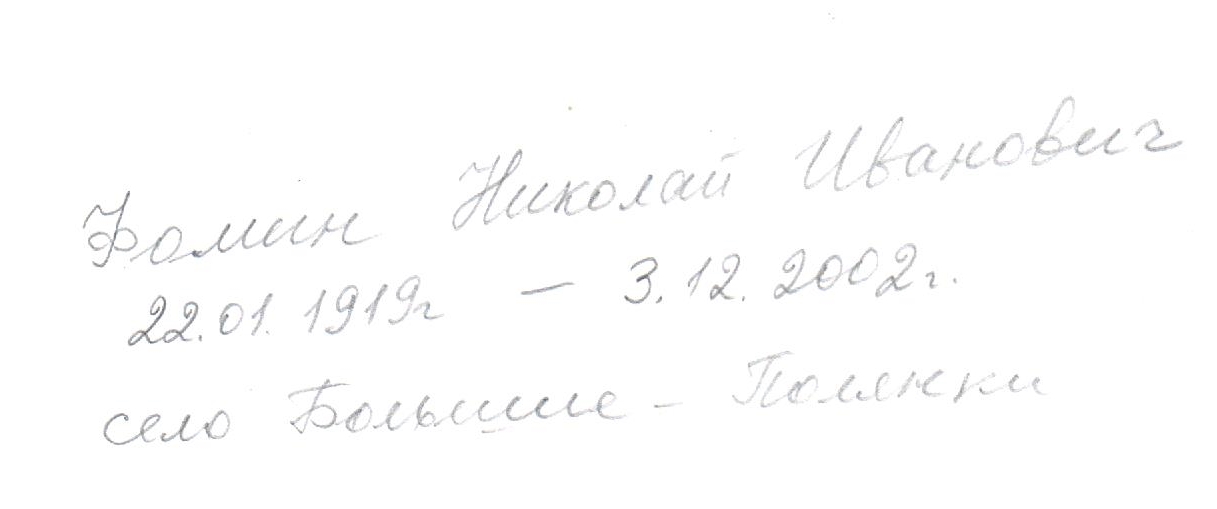 Фомин Николай Иванович
22.01.1919г — 3.12.2002г.
село Большие - Полянки